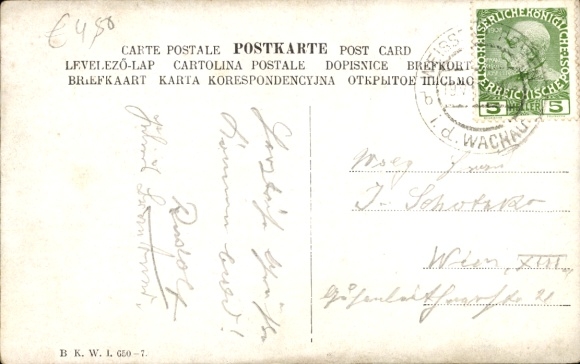 € 4,50
CARTE POSTALE POSTKARTE POST CARD
LEVELEZŐ-LAP CARTOLINA POSTALE DOPISNICE BREFKORT
BRIEFKAART KARTA KORESPONDENCYJNA ОТКРЫТОЕ ПИСЬМО
KAISERLICHE KÖNIGLICHE
ÖSTERREICHISCHE
5 HELLER 5
WEISS
i. d. WACHAU
Herzliche Grüße
Kommen bald!
Rudolf
J. Schotzko
Wien, XIII
21
B. K. W. I. 650-7.